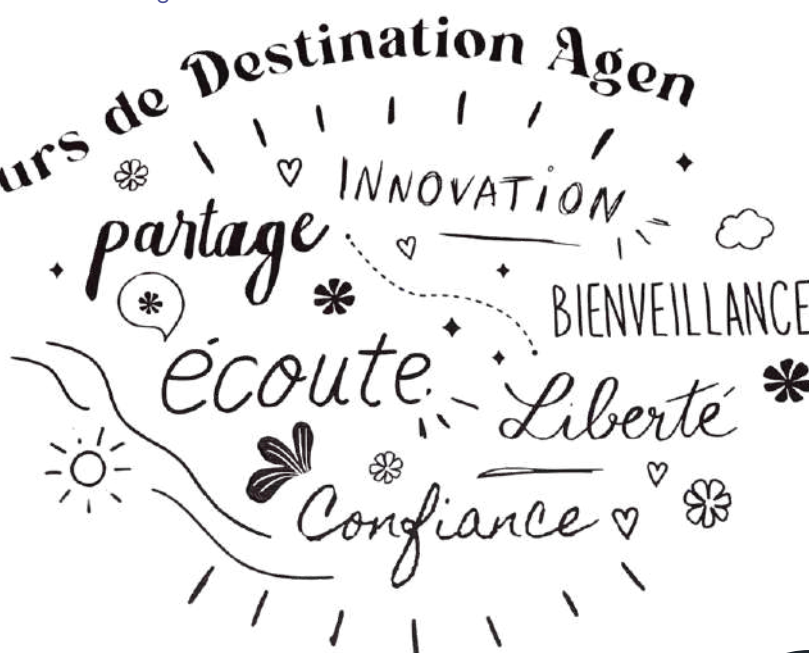 urs de Destination Agen
INNOVATION
partage
BIENVEILLANCE
écoute
Liberté
Confiance